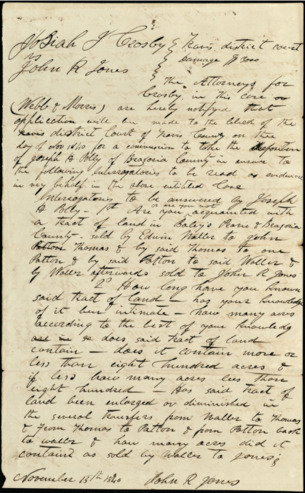 Josiah J Crosby } Harris district court
John R Jones
the Attorneys for
Crosby in this case
(Webb & Morris) are hereby notified that
application will be made to the clerk of the
district Court of Harris County on the
day of for a commission to take the deposition
of Joseph H Polly of Brazoria County in answer to
the following Interrogatories to be read as evidence
in the above entitled Case
Interrogatories to be answered by Joseph
H Polly – 1st Are you acquainted with
a tract of land in Brazoria
County – sold by Edwin Waller to John
Thomas & by said Thomas to one
Patton & by said Patton to said Waller &
by Waller afterwards sold to John R Jones
2 How long have you known
said tract of land – has your knowledge
of it been intimate – how many acres
according to the best of your knowledge
does said tract of land
contain – does it contain more or
less than eight hundred acres &
if less how many acres less than
eight hundred – Has said tract of
land been enlarged or diminished in
the several transfers from Waller to Thomas
& from Thomas to Patton & from Patton back
to Waller & how many acres did it
contain as sold by Waller to Jones
November 13th 1840 John R Jones